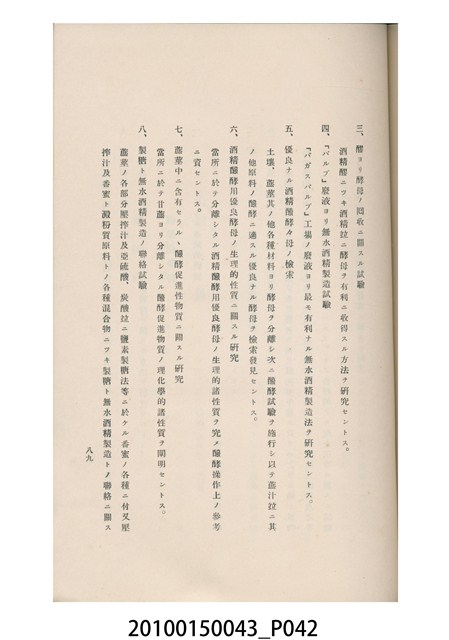 三、醪ヨリ酵母ノ囘收ニ關スル試驗
酒精醪ニツキ酒精竝ニ酵母ヲ有利ニ收得スル方法ヲ硏究セントス。
四、「パルプ」廢液ヨリ無水酒精製造試驗
「バガスパルプ」工場ノ廢液ヨリ最モ有利ナル無水酒精製造法ヲ硏究セントス。
五、優良ナル酒精醱酵々母ノ檢索
土壤、蔗莖其ノ他各種材料ヨリ酵母ヲ分離シ次ニ醱酵試驗ヲ施行シ以テ蔗汁竝ニ其
ノ他原料ノ醱酵ニ適スル優良ナル酵母ヲ檢索發見セントス。
六、酒精醱酵用優良酵母ノ生理的性質ニ關スル硏究
當所ニ於テ分離シタル酒精醱酵用優良酵母ノ生理的諸性質ヲ究メ醱酵操作上ノ參考
ニ資セントス。
七、蔗莖中ニ含有セラルヽ醱酵促進性物質ニ關スル硏究
當所ニ於テ甘蔗ヨリ分離シタル醱酵促進物質ノ理化學的諸性質ヲ闡明セントス。
八、製糖ト無水酒精製造ノ聯絡試驗
蔗莖ノ各部分壓搾汁及亞硫酸、炭酸竝ニ鹽素製糖法等ニ於ケル番蜜ノ各種ニ付又壓
搾汁及番蜜ト澱粉質原料トノ各種混合物ニツキ製糖ト無水酒精製造トノ聯絡ニ關ス
八九
20100150043_P042